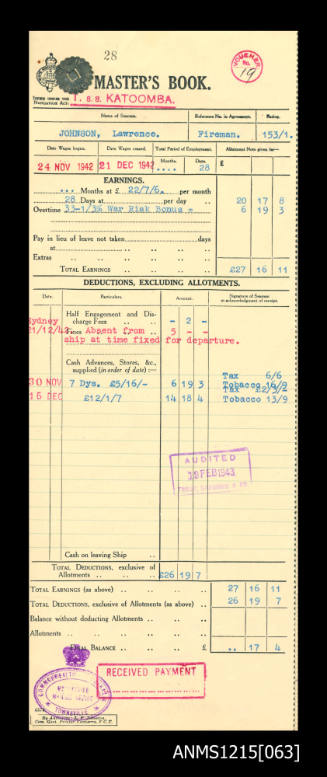 28
VOUCHER No. 19
MASTER'S BOOK.
Navigation Act. T. S. S. KATOOMBA.
Name of Seaman. Reference No. in Agreement. Rating.
JOHNSON, Lawrence. Fireman. 153/1.
Date Wages began. Date Wages ceased. Total Period of Employment. Allotment Note given for—
24 NOV 1942 21 DEC 1942 Months. .... Days. 28 £
EARNINGS.
... Months at £ 22/7/6. per month
28 Days at per day .. 20 17 8
Overtime 33-1/3% War Risk Bonus = 6 19 3
Pay in lieu of leave not taken days
at .. .. .. ..
Extras .. .. .. .. ..
TOTAL EARNINGS .. .. £27 16 11
DEDUCTIONS, EXCLUDING ALLOTMENTS.
Date. Particulars. Amount. Signature of Seaman in acknowledgment of receipt.
Half Engagement and Dis-
Sydney charge Fees .. .. - 2 -
21/12/42 Fines Absent from .. 5 - -
ship at time fixed for departure.
Cash Advances, Stores, &c.,
supplied (in order of date) :—
Tax 6/6
30 NOV 7 Dys. £5/16/- 6 19 3 Tobacco 16/9
Tax £2/3/2
16 DEC £12/1/7 14 18 4 Tobacco 13/9
AUDITED
19 FEB 1943
Cash on leaving Ship ..
TOTAL DEDUCTIONS, exclusive of
Allotments .. .. .. £26 19 7
TOTAL EARNINGS (as above) .. .. .. 27 16 11
TOTAL DEDUCTIONS, exclusive of Allotments (as above) .. 26 19 7
Balance without deducting Allotments .. ..
Allotments .. .. .. .. .. ..
TOTAL BALANCE .. .. £ .. 17 4
RECEIVED PAYMENT
COMMONWEALTH
TOWNSVILLE
ANMS1215[063]